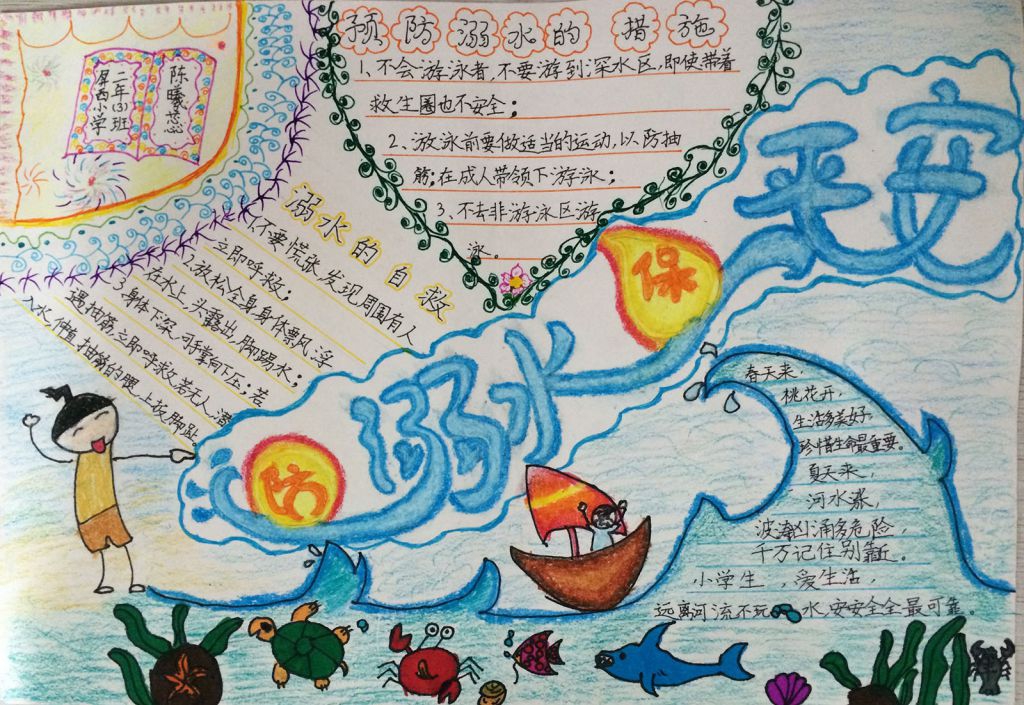 预防溺水的措施
1、不会游泳者,不要游到深水区,即使带着
救生圈也不安全;
2、游泳前要做适当的运动,以防抽
筋;在成人带领下游泳;
3、不去非游泳区游
泳。
陈曦蕊
二年(3)班
屏西小学
溺水的自救
1、不要慌张,发现周围有人
立即呼救;
2、放松全身,身体飘风,浮
在水上,头露出,脚踢水;
3、身体下深,可手掌向下压;若
遇抽筋,立即呼救,若无人,潜
入水,伸直抽筋的腿,上扳脚趾。
防溺水保平安
春天来,
桃花开,
生活多美好,
珍惜生命最重要。
夏天来,
河水涨,
波涛汹涌多危险,
千万记住别靠近。
小学生,爱生活,
远离河流不玩水,安安全全最可靠。